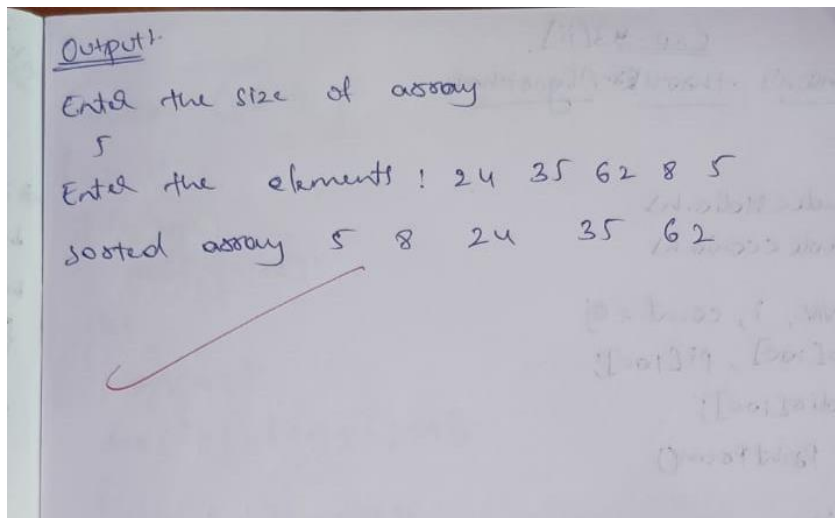 Output:
Enter the size of array
5
Enter the elements : 24 35 62 8 5
sorted array 5 8 24 35 62